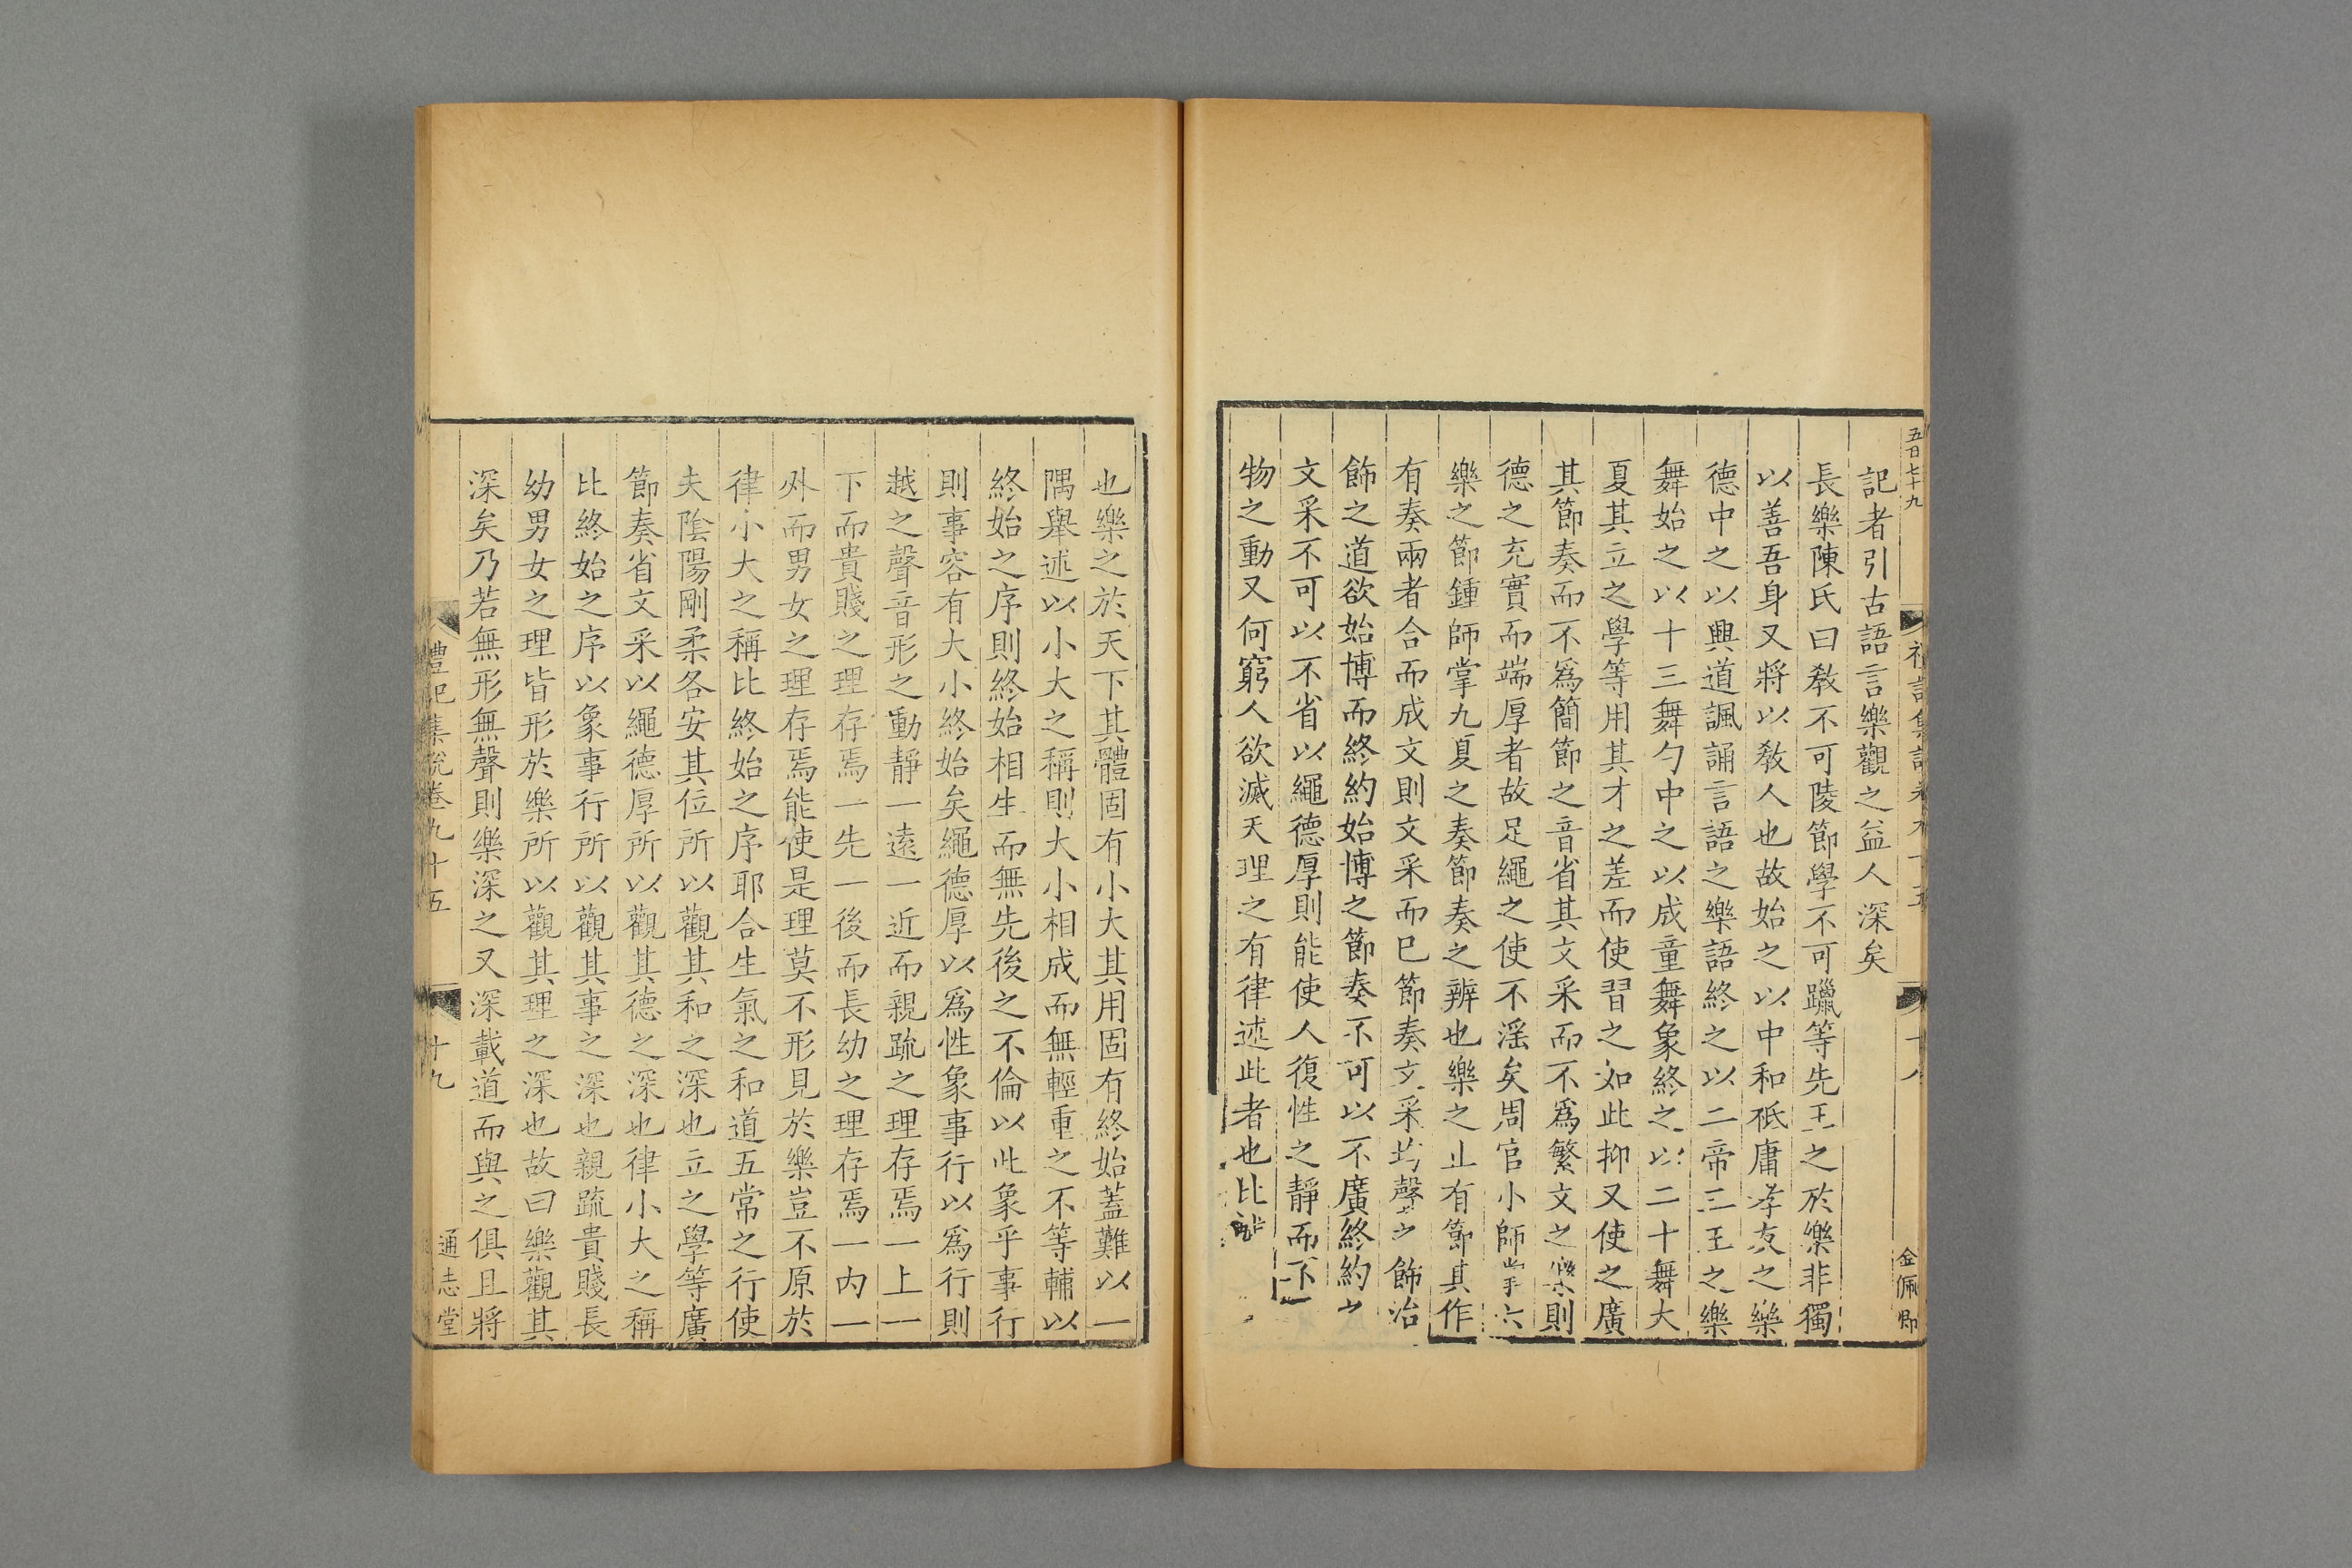 五百七十九
金佩卿
記者引古語言樂觀之益人深矣
長樂陳氏曰教不可陵節學不可躐等先王之於樂非獨
以善吾身又將以教人也故始之以中和祇庸孝友之樂
德中之以興道諷誦言語之樂語終之以二帝三王之樂
舞始之以十三舞勺中之以成童舞象終之以二十舞大
夏其立之學等用其才之差而使習之如此抑又使之廣
其節奏而不爲簡節之音省其文采而不爲繁文之樂則
德之充實而端厚者故足繩之使不淫矣周官小師掌六
樂之節鍾師掌九夏之奏節奏之辨也樂之止有節其作
有奏兩者合而成文則文采而已節奏文采均聲之飾治
飾之道欲始博而終約始博之節奏不可以不廣終約之
文采不可以不省以繩德厚則能使人復性之靜而不
物之動又何窮人欲滅天理之有律述此者也比
也樂之於天下其體固有小大其用固有終始蓋難以一
隅舉述以小大之稱則大小相成而無輕重之不等輔以
終始之序則終始相生而無先後之不倫以此象乎事行
則事容有大小終始矣繩德厚以爲性象事行以爲行則
越之聲音形之動靜一遠一近而親疏之理存焉一上一
下而貴賤之理存焉一先一後而長幼之理存焉一內一
外而男女之理存焉能使是理莫不形見於樂豈不原於
律小大之稱比終始之序耶合生氣之和道五常之行使
夫陰陽剛柔各安其位所以觀其和之深也立之學等廣
節奏省文采以繩德厚所以觀其德之深也律小大之稱
比終始之序以象事行所以觀其事之深也親疏貴賤長
幼男女之理皆形於樂所以觀其理之深也故曰樂觀其
深矣乃若無形無聲則樂深之又深載道而與之俱且將
禮記集說卷九十五
十九
通志堂